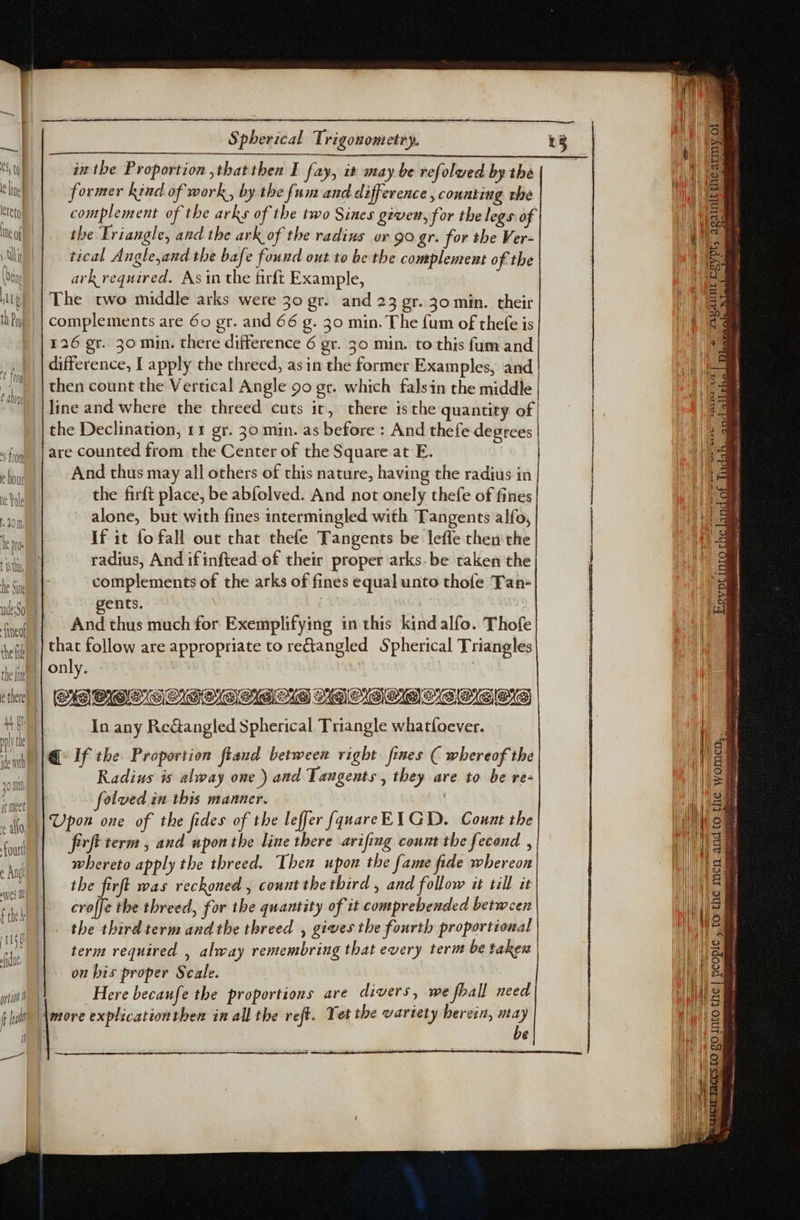 Spherical Trigonometry. 13
in the Proportion ,that then I ſay, it may be reſolved by the
former kind of work, by the ſum and difference, counting the
complement of the arks of the two Sines given, for the legs of
the Triangle, and the ark of the radius or 90 gr. for the Ver-
tical Angle,and the baſe found out to be the complement of the
ark required. As in the firſt Example,
The two middle arks were 30 gr. and 23 gr. 30 min. their
complements are 60 gr. and 66 g. 30 min. The ſum of theſe is
126 gr. 30 min. there difference 6 gr. 30 min. to this ſum and
difference, I apply the threed, as in the former Examples, and
then count the Vertical Angle 90 gr. which fals in the middle
line and where the threed cuts it, there is the quantity of
the Declination, 11 gr. 30 min. as before : And theſe degrees
are counted from the Center of the Square at E.
And thus may all others of this nature, having the radius in
the firſt place, be abſolved. And not onely theſe of ſines
alone, but with ſines intermingled with Tangents alſo,
If it ſo fall out that theſe Tangents be leſſe then the
radius, And if inſtead of their proper arks be taken the
complements of the arks of ſines equal unto thoſe Tan-
gents.
And thus much for Exemplifying in this kind alſo. Thoſe
that follow are appropriate to rectangled Spherical Triangles
only.
In any Rectangled Spherical Triangle whatſoever.
If the Proportion ſtand between right ſines ( whereof the
Radius is alway one ) and Tangents, they are to be re-
ſolved in this manner.
Upon one of the ſides of the leſſer ſquare E I G D. Count the
firſt term, and upon the line there ariſing count the ſecond ,
whereto apply the threed. Then upon the ſame ſide whereon
the firſt was reckoned, count the third, and follow it till it
croſſe the threed, for the quantity of it comprehended between
the third term and the threed , gives the fourth proportional
term required , alway remembring that every term be taken
on his proper Scale.
Here becauſe the proportions are divers, we ſhall need
more explication then in all the reſt. Yet the variety herein, may
be